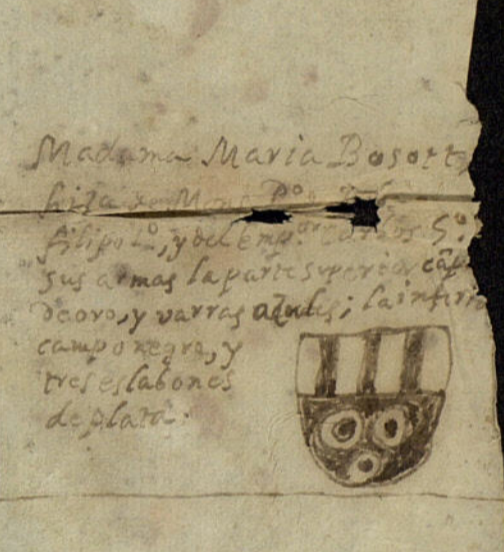 Madama Maria Bosott
hija de Mons
filipo 1º, y del Emp.or Carlos 5º
sus armas la parte superior camp
de oro, y varras azules; la inferio
campo negro, y
tres eslabones
de plata.